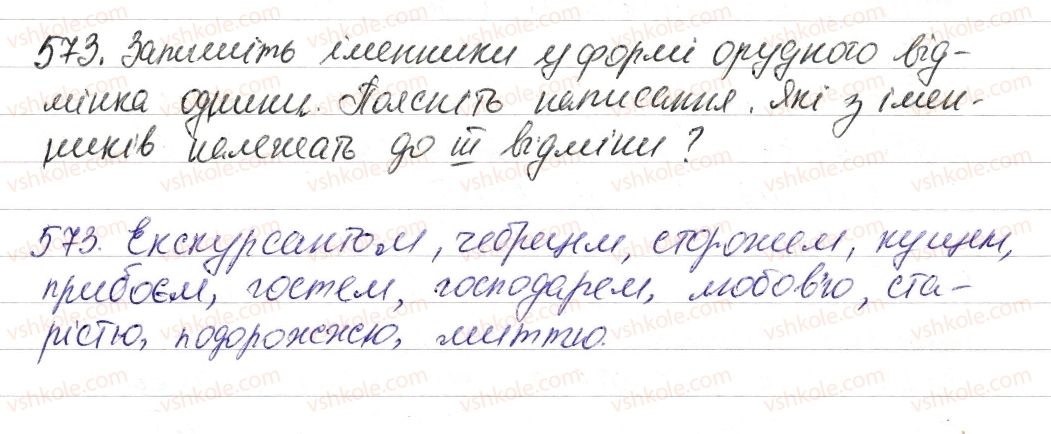 573. Запишіть іменники у формі орудного від-
мінка однини. Поясніть написання. Які з імен-
ників належать до III відміни?
573. Екскурсантом, чебрецем, сторожем, кущем,
прибоєм, гостем, господарем, любов'ю, ста-
рістю, подорожжю, миттю.